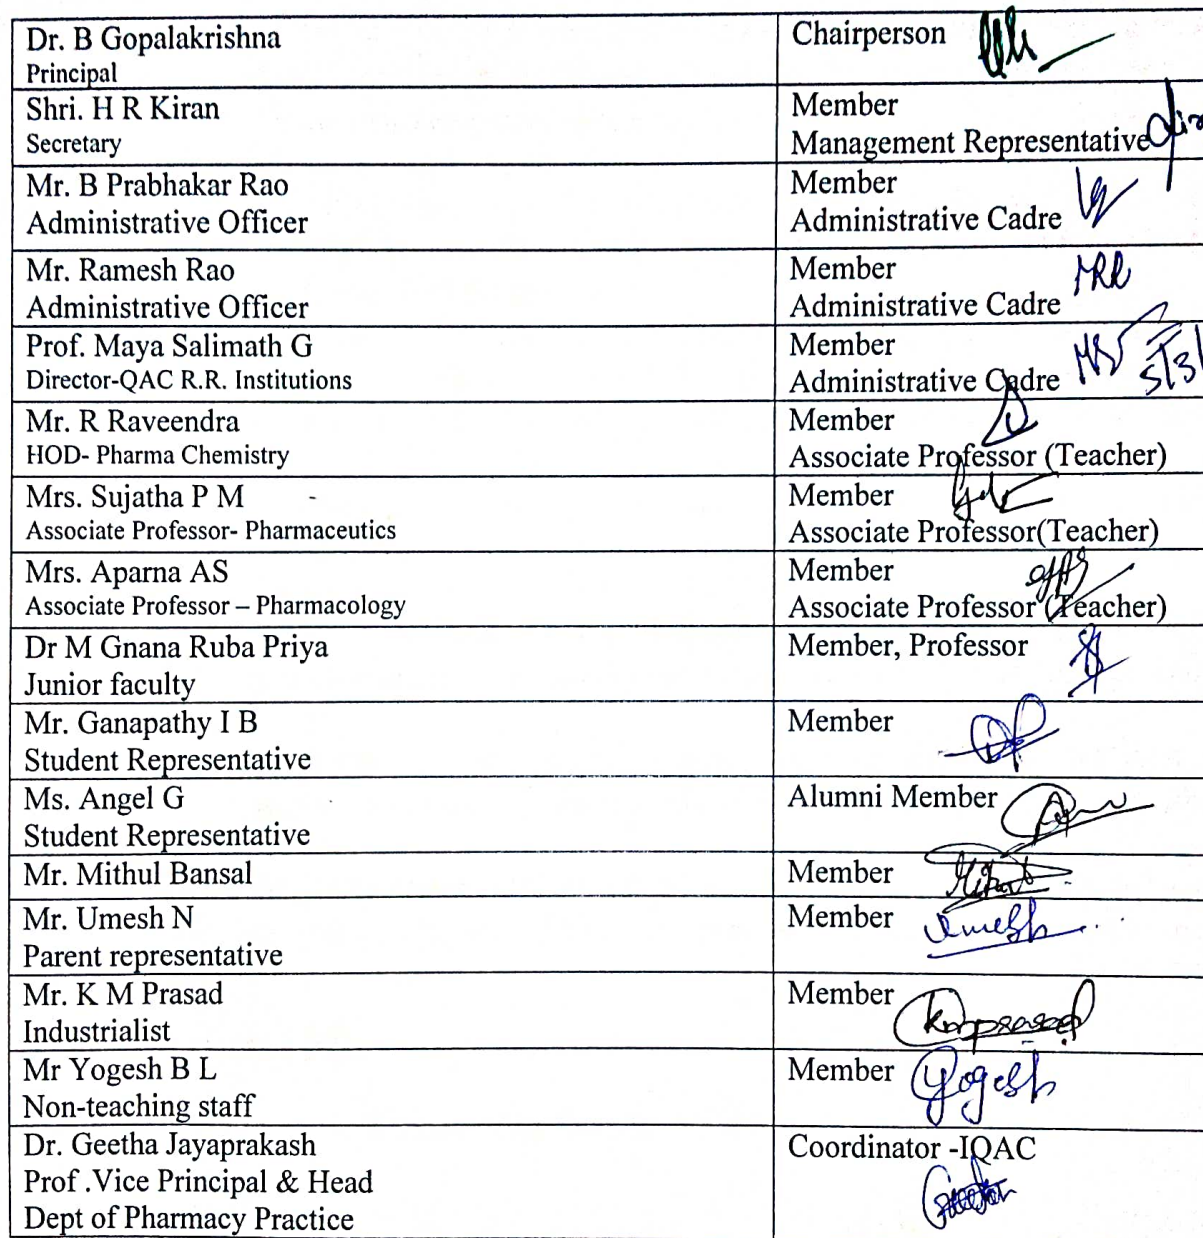 Dr. B Gopalakrishna
Principal
Chairperson
Shri. H R Kiran
Secretary
Member
Management Representative
Mr. B Prabhakar Rao
Administrative Officer
Member
Administrative Cadre
Mr. Ramesh Rao
Administrative Officer
Member
Administrative Cadre
MRR
Prof. Maya Salimath G
Director-QAC R.R. Institutions
Member
Administrative Cadre
Mr. R Raveendra
HOD- Pharma Chemistry
Member
Associate Professor (Teacher)
Mrs. Sujatha P M -
Associate Professor- Pharmaceutics
Member
Associate Professor(Teacher)
Mrs. Aparna AS
Associate Professor – Pharmacology
Member
Associate Professor (Teacher)
Dr M Gnana Ruba Priya
Junior faculty
Member, Professor
Mr. Ganapathy I B
Student Representative
Member
Ms. Angel G
Student Representative
Alumni Member
Mr. Mithul Bansal
Member
Mr. Umesh N
Parent representative
Member
Umesh
Mr. K M Prasad
Industrialist
Member
Kmprasad
Mr Yogesh B L
Non-teaching staff
Member
Yogesh
Dr. Geetha Jayaprakash
Prof .Vice Principal & Head
Dept of Pharmacy Practice
Coordinator -IQAC